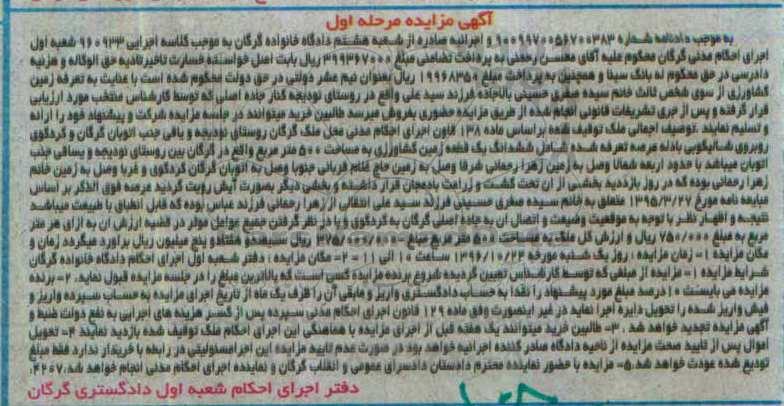 آگهی مزایده مرحله اول
به موجب دادنامه شماره ۹۰۰۹۹۷۰۰۵۶۷۰۰۳۸۳ و اجرائیه صادره از شعبه هشتم دادگاه خانواده گرگان به موجب کلاسه اجرایی ۹۶۰۹۳۳ شعبه اول
اجرای احکام مدنی گرگان محکوم علیه آقای محسن رحمتی به پرداخت تضامنی مبلغ ۳۹۹۳۶۷۰۰۰ ریال بابت اصل خواسته خسارت تاخیر تادیه حق الوکاله و هزینه
دادرسی در حق محکوم له بانک سینا و همچنین به پرداخت مبلغ ۱۹۹۶۸۳۵۰ ریال بعنوان نیم عشر دولتی در حق دولت محکوم شده است با عنایت به تعرفه زمین
کشاورزی از سوی شخص ثالث خانم سیده صغری حسینی بالاجاده فرزند سید علی واقع در روستای نودیجه کنار جاده اصلی که توسط کارشناس منتخب مورد ارزیابی
قرار گرفته و پس از جری تشریفات قانونی انجام شده از طریق مزایده حضوری بفروش میرسد طالبین خرید میتوانند در جلسه مزایده شرکت و پیشنهاد خود را ارائه
و تسلیم نمایند. توصیف اجمالی ملک توقیف شده براساس ماده ۱۳۸ قانون اجرای احکام مدنی محل ملک گرگان روستای نودیجه و باقی جنب اتوبان گرگان و کردکوی
روبروی شالیکوبی باذله عرصه تعرفه شده شامل ششدانگ یک قطعه زمین کشاورزی به مساحت ۵۰۰ متر مربع واقع در گرگان بین روستای نودیجه و یساقی جنب
اتوبان میباشد با حدود اربعه شمالا وصل به زمین زهرا رحمانی شرقا وصل به زمین حاج غلام قربانی جنوبا وصل به اتوبان گرگان کردکوی و غربا وصل به زمین خانم
زهرا رحمانی بوده که در روز بازدید بخشی از آن تحت کشت و زراعت بادمجان قرار داشته و بخشی دیگر بصورت آیش رویت گردید عرصه فوق الذکر بر اساس
مبایعه نامه مورخ ۱۳۹۵/۳/۲۷ متعلق به خانم سیده صغری حسینی فرزند سید علی انتقالی از زهرا رحمانی فرزند عباس بوده که قابل انطباق با طبیعت میباشد
نتیجه و اظهار نظر با توجه به موقعیت وضعیت و اتصال آن به جاده اصلی گرگان به کردکوی و با در نظر گرفتن جمیع عوامل موثر در قضیه ارزش آن به ازای هر متر
مربع به مبلغ ۷۵۰/۰۰۰ ریال و ارزش کل ملک به مساحت ۵۰۰ متر مربع مبلغ ریال سیصد و هفتاد و پنج میلیون ریال براورد میگردد زمان و
مکان مزایده ۱- زمان مزایده : روز یک شنبه مورخه ۱۳۹۶/۱۰/۲۴ ساعت ۱۰ الی ۱۱ – ۲- مکان مزایده : دفتر شعبه اول اجرای احکام دادگاه خانواده گرگان
شرایط مزایده ۱- مزایده از مبلغی که توسط کارشناس تعیین گردیده شروع برنده مزایده کسی است که بالاترین مبلغ را در جلسه مزایده قبول نماید. ۲- برنده
مزایده می بایست ۱۰ درصد مبلغ مورد پیشنهاد را نقدا به حساب دادگستری واریز و مابقی آن را ظرف یک ماه از تاریخ اجرای مزایده به حساب سپرده واریز و
فیش واریز شده را تحویل دایره اجرا نماید در غیر اینصورت وفق ماده ۱۲۹ قانون اجرای احکام مدنی سپرده پس از کسر هزینه های اجرایی به نفع دولت ضبط و
آگهی مزایده تجدید خواهد شد. ۳- طالبین خرید میتوانند یک هفته قبل از اجرای مزایده با هماهنگی این اجرای احکام ملک توقیف شده بازدید نمایند ۴- تحویل
اموال پس از تایید صحت مزایده از ناحیه دادگاه صادر کننده اجرائیه خواهد بود در صورت عدم تایید مزایده این اجرا مسئولیتی در رابطه با خریدار ندارد فقط مبلغ
تودیع شده عودت خواهد شد. ۵- مزایده با حضور نماینده محترم دادستان دادسرای عمومی و انقلاب گرگان و نماینده اجرای احکام مدنی انجام خواهد شد. ۴۲۰۷
دفتر اجرای احکام شعبه اول دادگستری گرگان